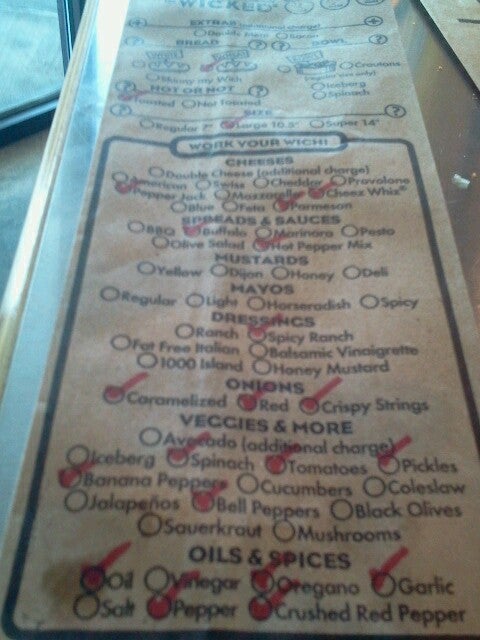 "WICKED"
EXTRAS (additional charge)
Double Meat Bacon
BREAD BOWL
Croutons
Skinny my Wich
Iceberg
HOT OR NOT Spinach
Toasted Not Toasted
SIZE
Regular 7" Large 10.5" Super 14"
WORK YOUR WICH!
CHEESES
Double Cheese (additional charge)
American Swiss Cheddar Provolone
Pepper Jack Mozzarella Cheez Whiz®
Blue Feta Parmesan
SPREADS & SAUCES
BBQ Buffalo Marinara Pesto
Olive Salad Hot Pepper Mix
MUSTARDS
Yellow Dijon Honey Deli
MAYOS
Regular Light Horseradish Spicy
DRESSINGS
Ranch Spicy Ranch
Fat Free Italian Balsamic Vinaigrette
1000 Island Honey Mustard
ONIONS
Caramelized Red Crispy Strings
VEGGIES & MORE
Avocado (additional charge)
Iceberg Spinach Tomatoes Pickles
Banana Peppers Cucumbers Coleslaw
Jalapeños Bell Peppers Black Olives
Sauerkraut Mushrooms
OILS & SPICES
Oil Vinegar Oregano Garlic
Salt Pepper Crushed Red Pepper